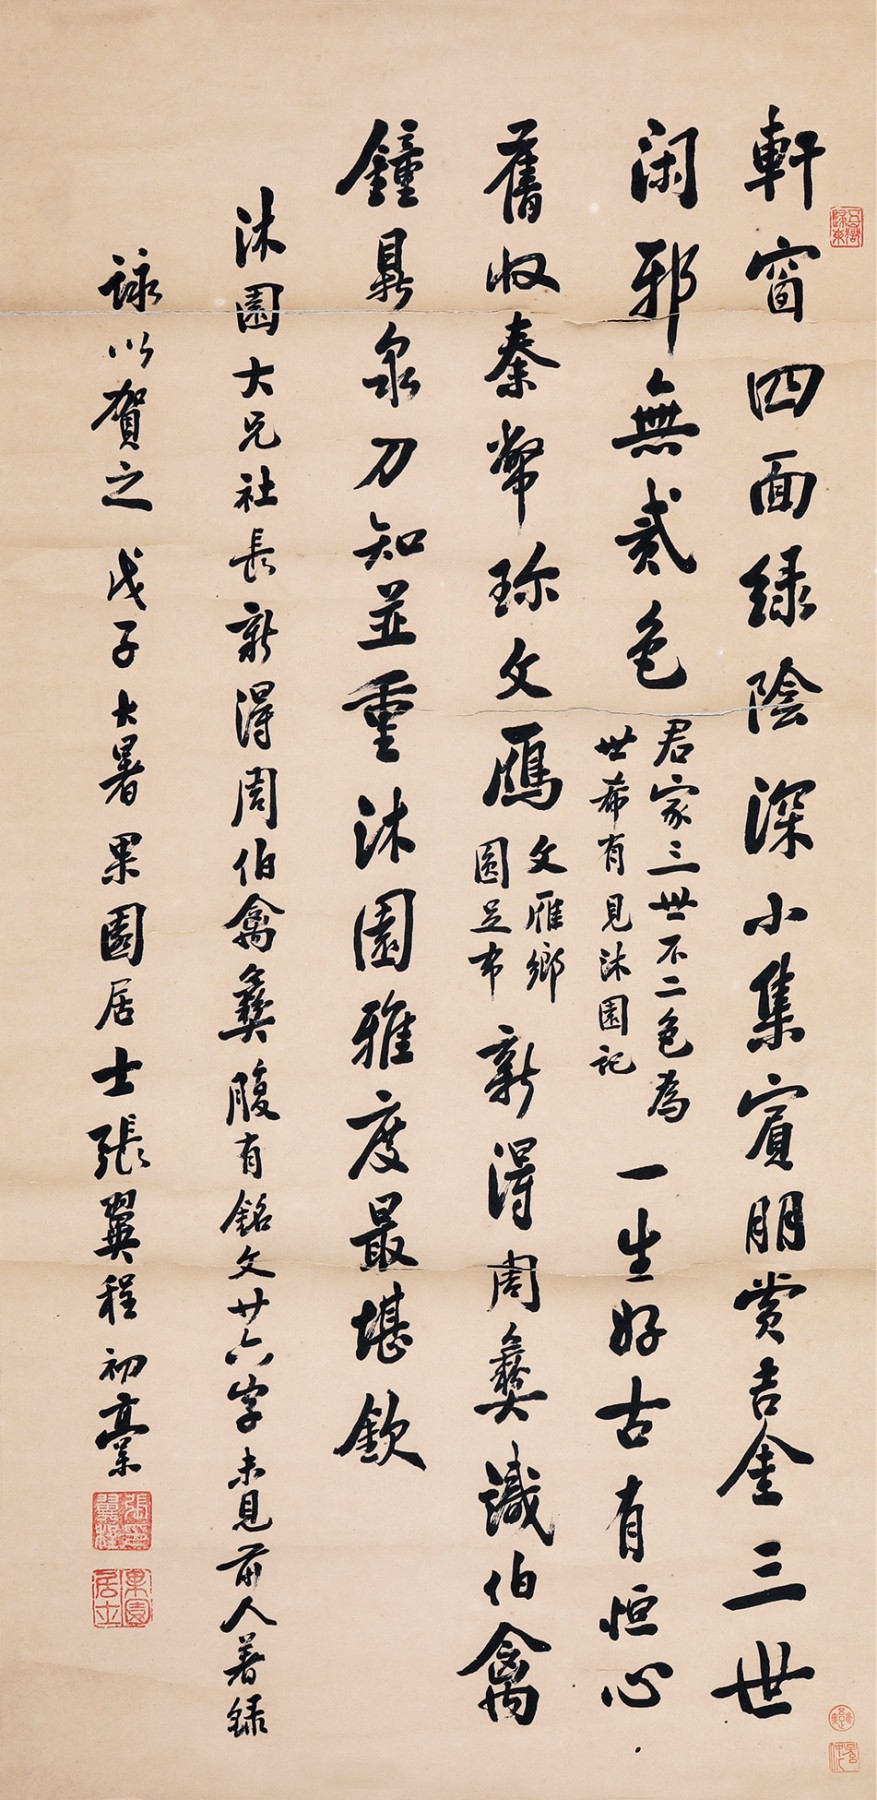 軒窗四面緑陰深小集賓朋賞吉金三世
閑邪無貳色
君家三世不二色為
世希有見沐園記
一生好古有恒心
舊收秦幣珎文鴈
文雁鄉
圓足布
新得周彝識伯禽
鐘鼎泉刀知並重沐園雅度最堪欽
沐園大兄社長新得周伯禽彝腹有銘文廿六字未見前人著録
詠以賀之戊子大暑果園居士張翼程初稾
張翼程印
果園居士